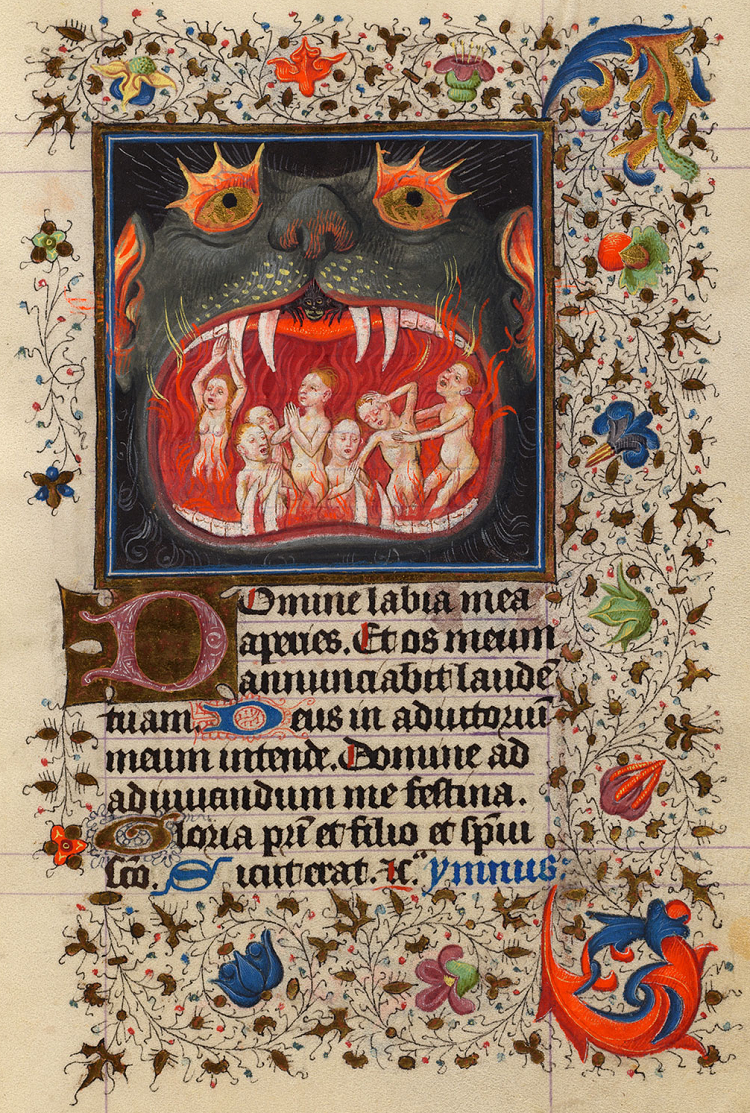 Domine labia mea
aperies. Et os meum
annunciabit laudē
tuam. Deus in adiutoriū
meum intende. Domine ad
adiuuandum me festina.
Gloria pr̄i et filio et sp̄ui
sc̄o. Sicut erat. ⁊c̄. ymnus: